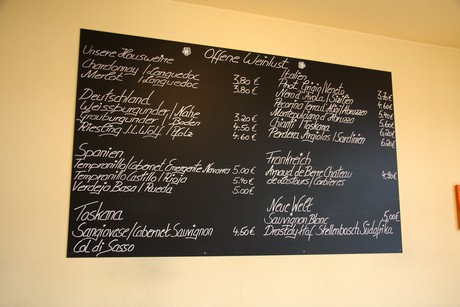 Offene Weinlust
Unsere Hausweine
Chardonnay / Languedoc 3,80 €
Merlot / Languedoc 3,80 €
Deutschland
Weissburgunder / Nahe 3.20 €
Grauburgunder / Baden 4.50 €
Riesling J.L.Wolf / Pfalz 4.60 €
Spanien
Tempranillo/Cabernet Emergente Navarra 5.00 €
Tempranillo Castillo / Rioja 5.40 €
Verdejo Basa / Rueda 5.00 €
Toskana
Sangiovese/Cabernet Sauvignon 4.50 €
Col di Sasso
Italien
Pinot Grigio/Veneto
Nero d'Avola / Sizilien
Pecorino Abruzzen
Montepulciano d'Abruzzo
Chianti Toskana
Perdera Argiolas / Sardinien 6.20 €
Frankreich
Arnaud de Berre Chateau 4,90 €
de Lastours / Corbières
Neue Welt
Sauvignon Blanc 5,00 €
Drostdy-Hof, Stellenbosch, Südafrika